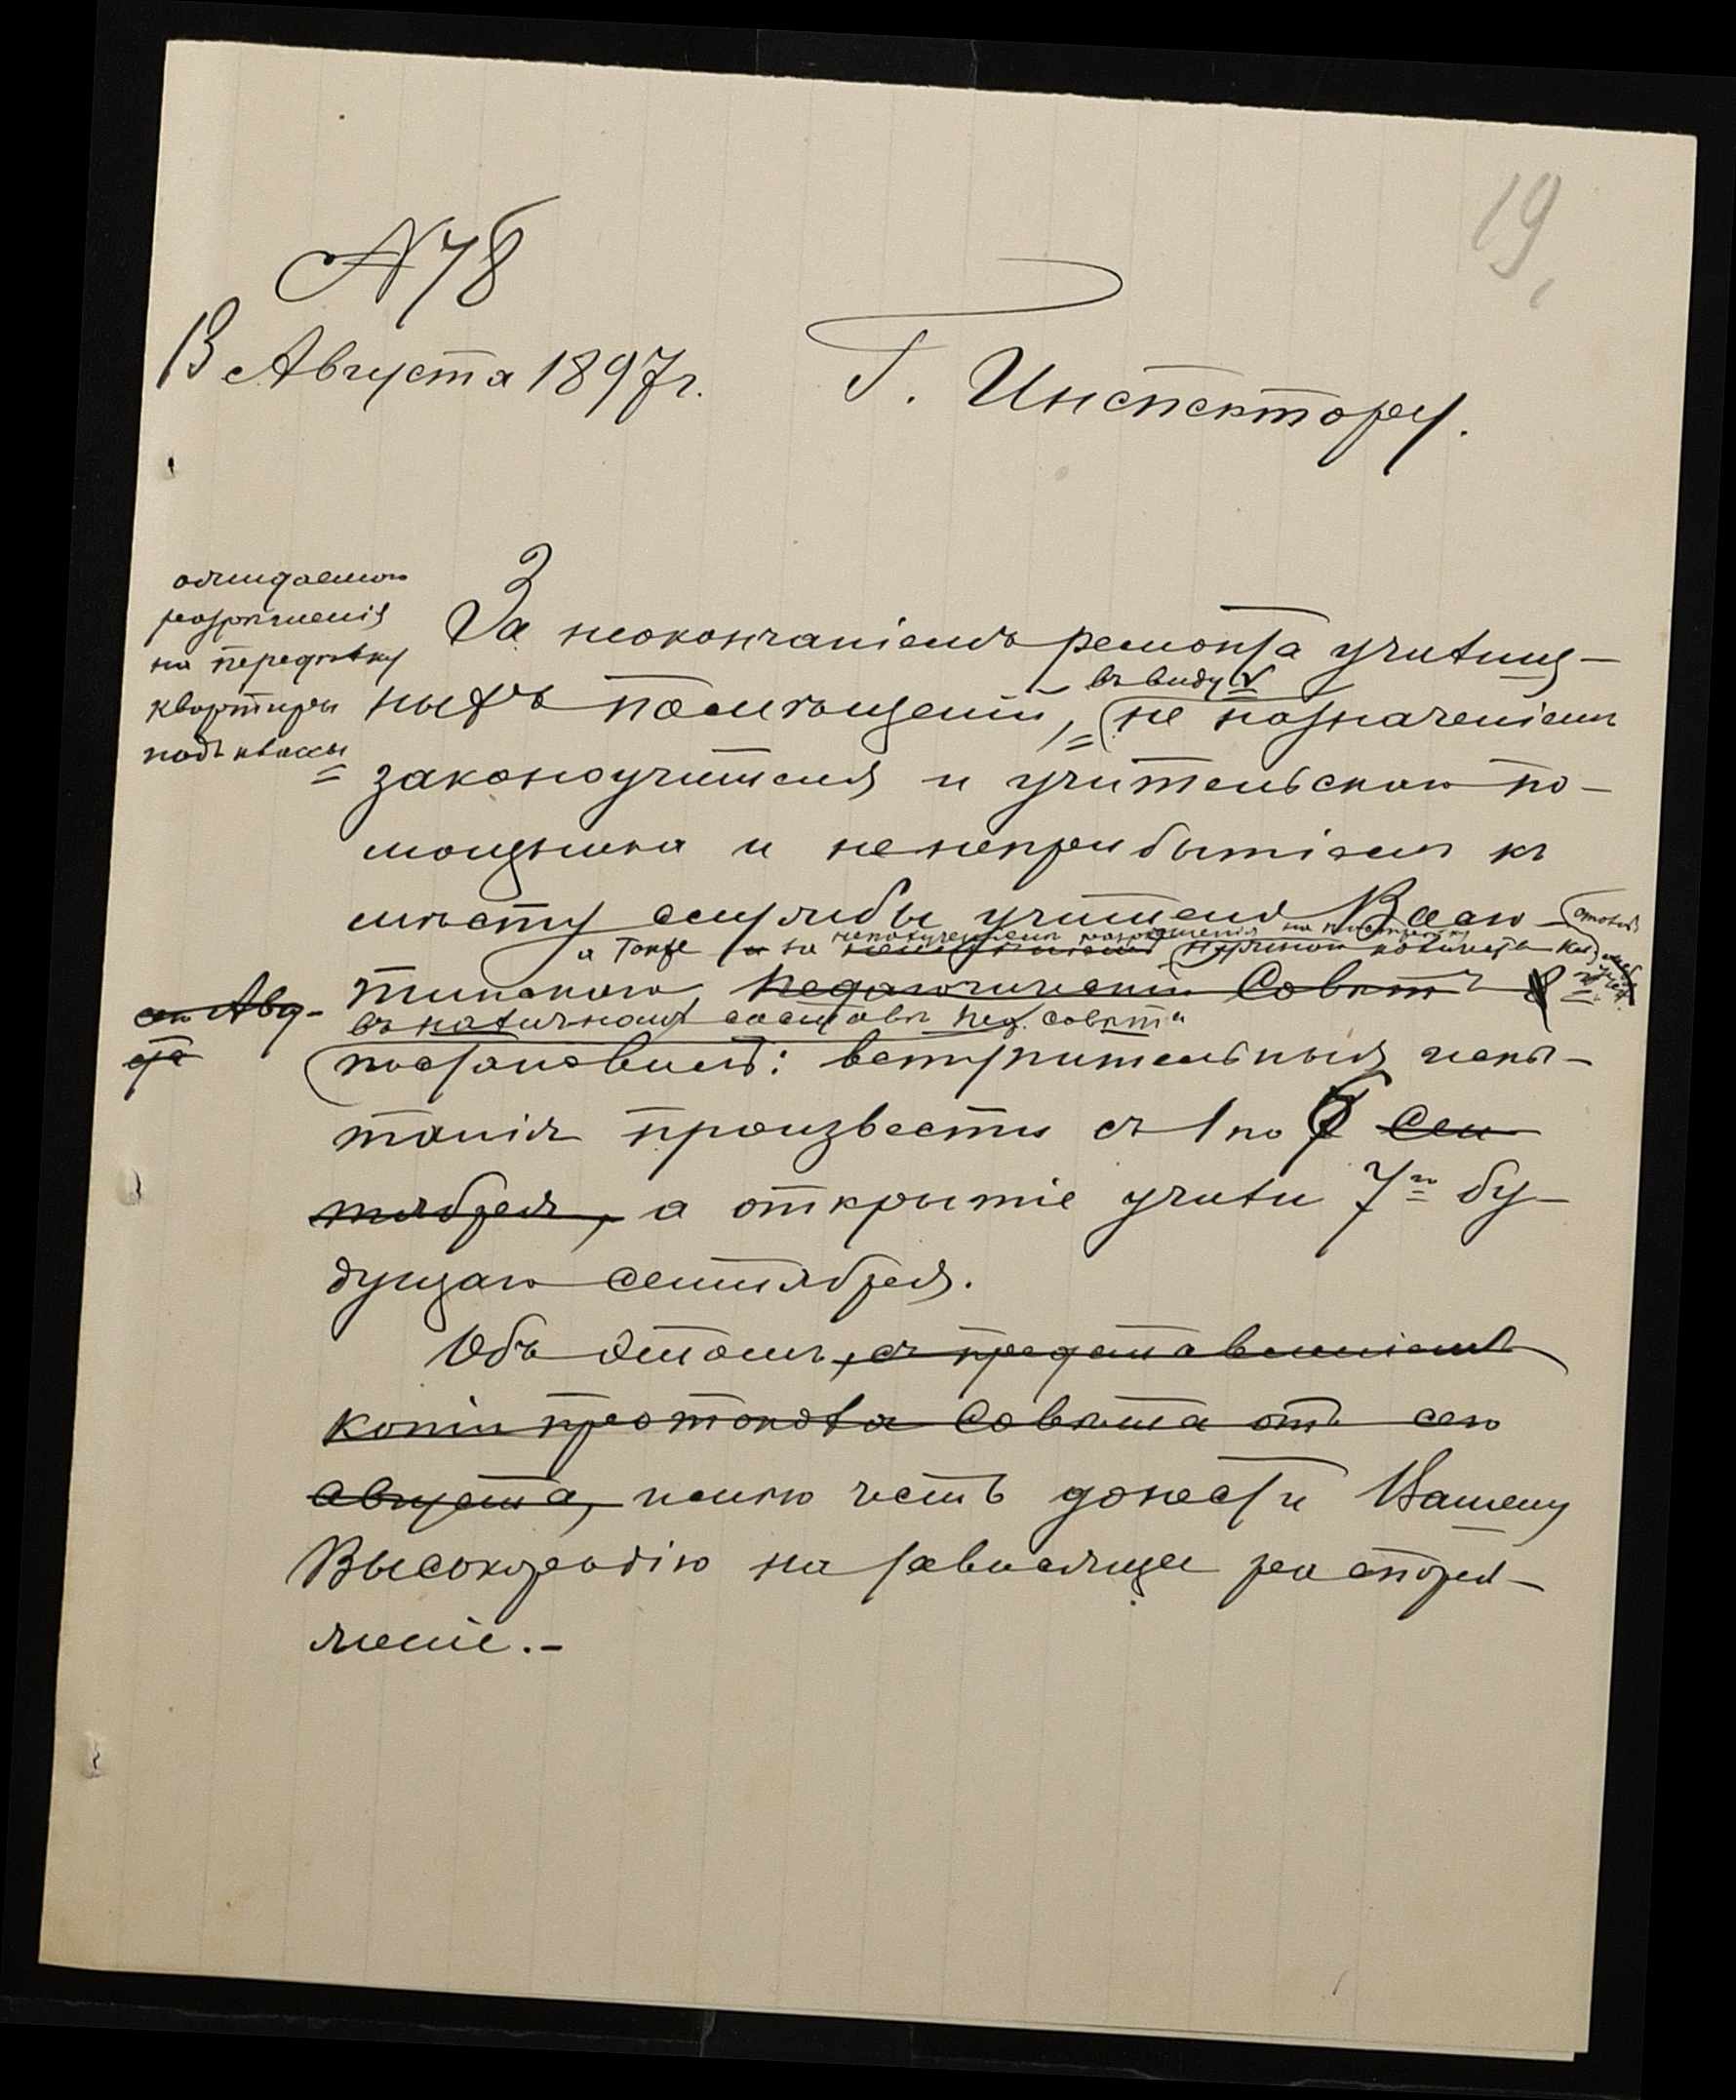 19
№ 78
13 Августа 1897 г.
Г. Инспектору.
ожидаемаго
разрѣшенія
на передѣлку
квартиры
подъ классы
За неокончаніемъ ремонта училищ-
въ виду
ныхъ помѣщеній, не назначеніемъ
законоучителя и учительскаго по-
мощника и не неприбытіемъ къ
мѣсту службы учителя
а также и за неполученіемъ разрѣшенія на
тинскаго, Педагогическій Совѣтъ 8
сего Авгу-
ста
въ наличномъ составѣ Пед. Совѣта
постановилъ: вступительныя испы-
танія произвести съ 1 по 6 Сен
тября, а открытіе учили 7го бу-
дущаго сентября.
Объ этомъ, съ представленіемъ
копіи протокола Совѣта отъ сего
августа, имѣю честь донести Вашему
Высокородію на зависящее распоря-
женіе.-